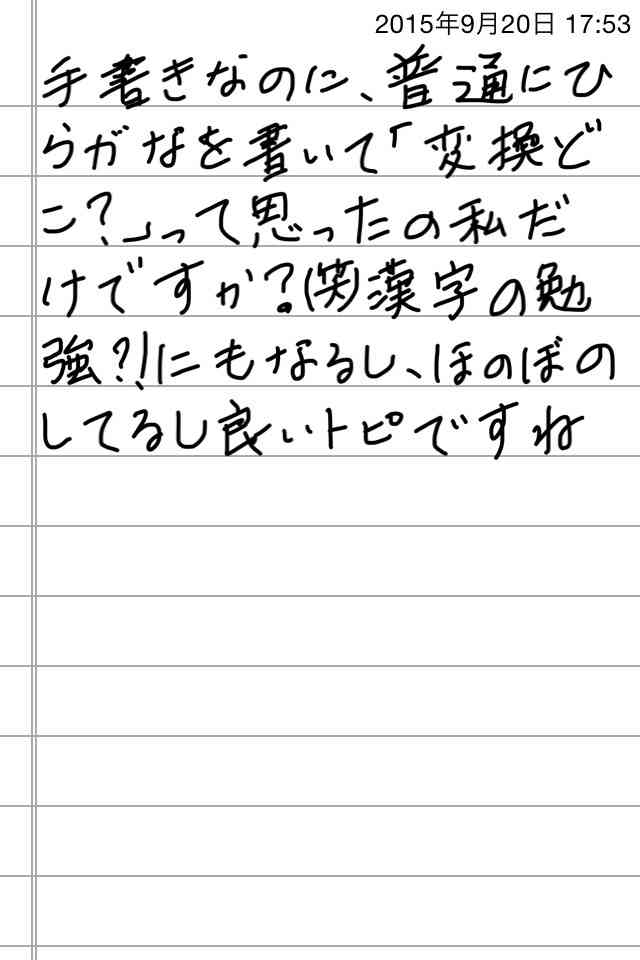 2015年9月20日 17:53
手書きなのに、普通にひ
らがなを書いて「変換ど
こ？」って思ったの私だ
けですか？(笑)漢字の勉
強？！にもなるし、ほのぼの
してるし良いトピですね